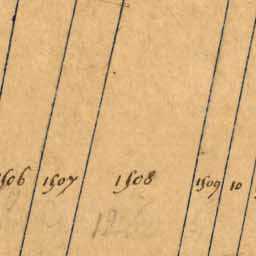 1506 1507 1508 1509 10